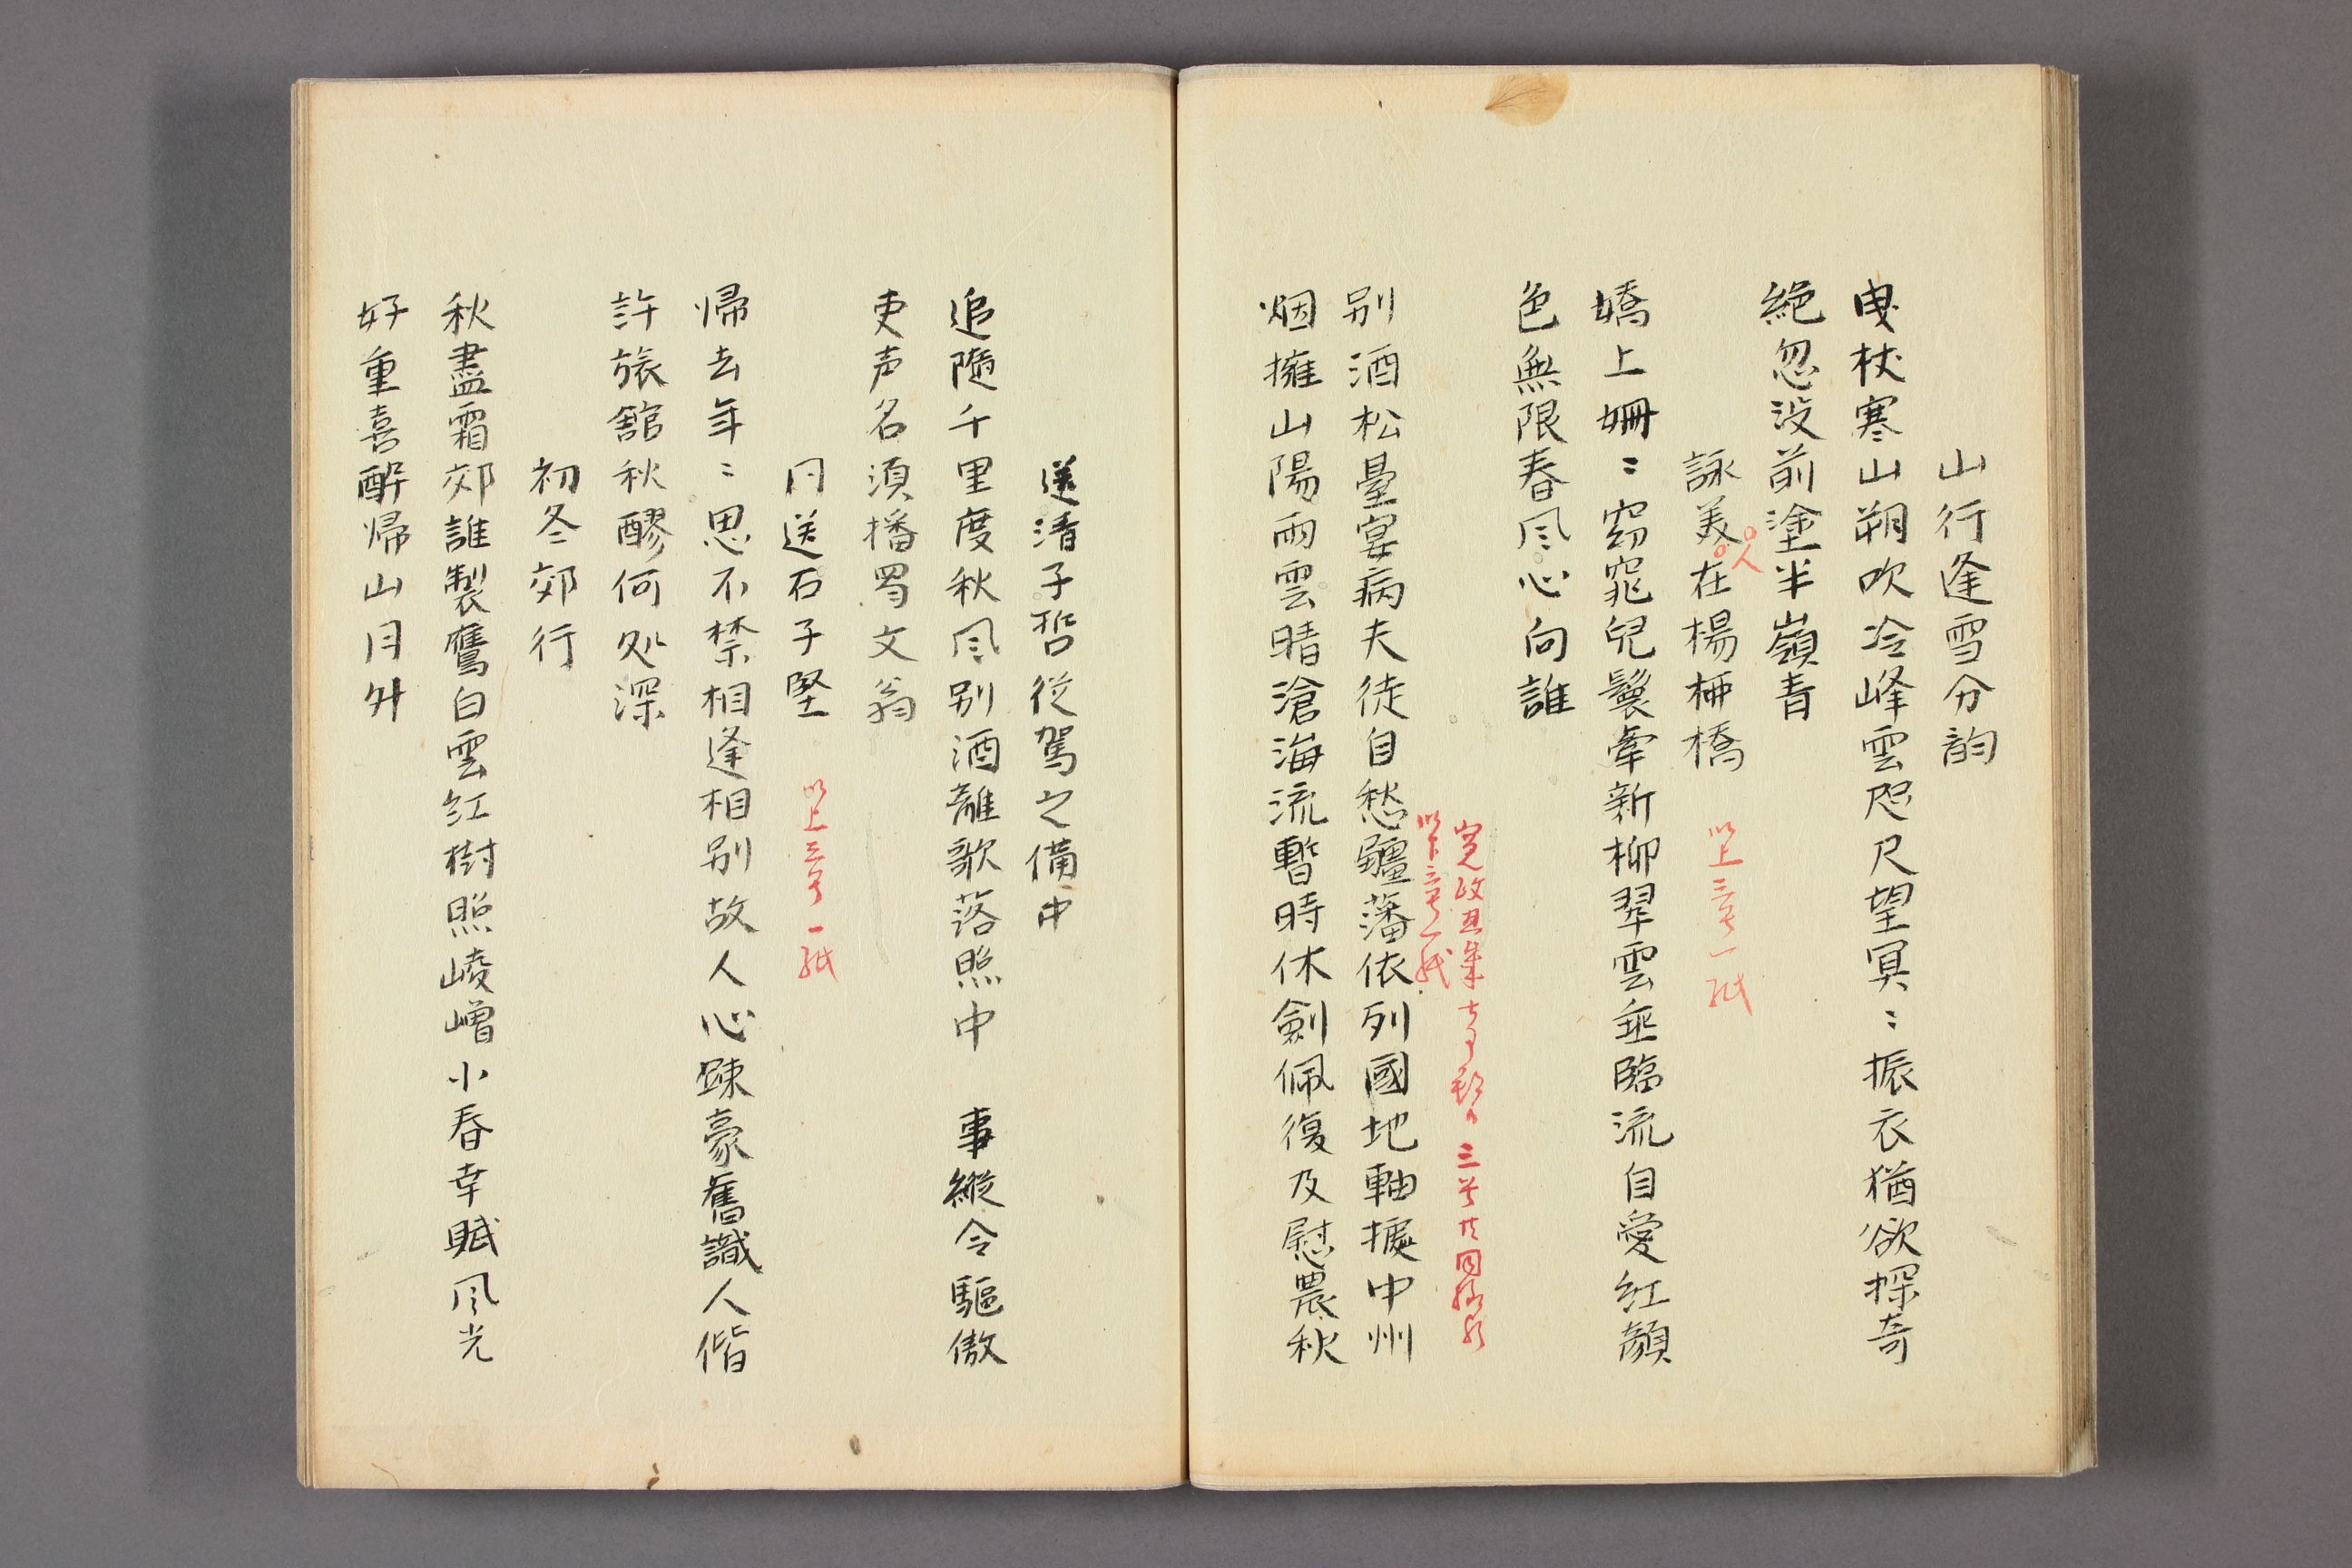 山行逢雪分韵
曳杖寒山朔吹冷峰雲咫尺望冥〻振衣猶欲探奇
絶忽没前塗半嶺青
詠美人在楊柳橋
以上三首一紙
嬌上姍〻窈窕皃鬟牽新柳翠雲垂臨流自愛紅顏
色無限春风心向誰
以下三首一紙
別酒松臺宴病夫徒自愁疆藩依列國地軸據中州
烟擁山陽雨雲晴滄海流暫時休劍佩復及慰農秋
送清子哲従駕之備中
追隨千里度秋风別酒離歌落照中 事縱令驅傲
吏声名須播蜀文翁
同送石子堅
以上三首一紙
帰去年〻思不禁相逢相別故人心踈豪舊識人偕
許旅舘秋醪何処深
初冬郊行
秋盡霜郊誰製鷹白雲紅樹照崚嶒小春幸賦风光
好重喜酔帰山月升